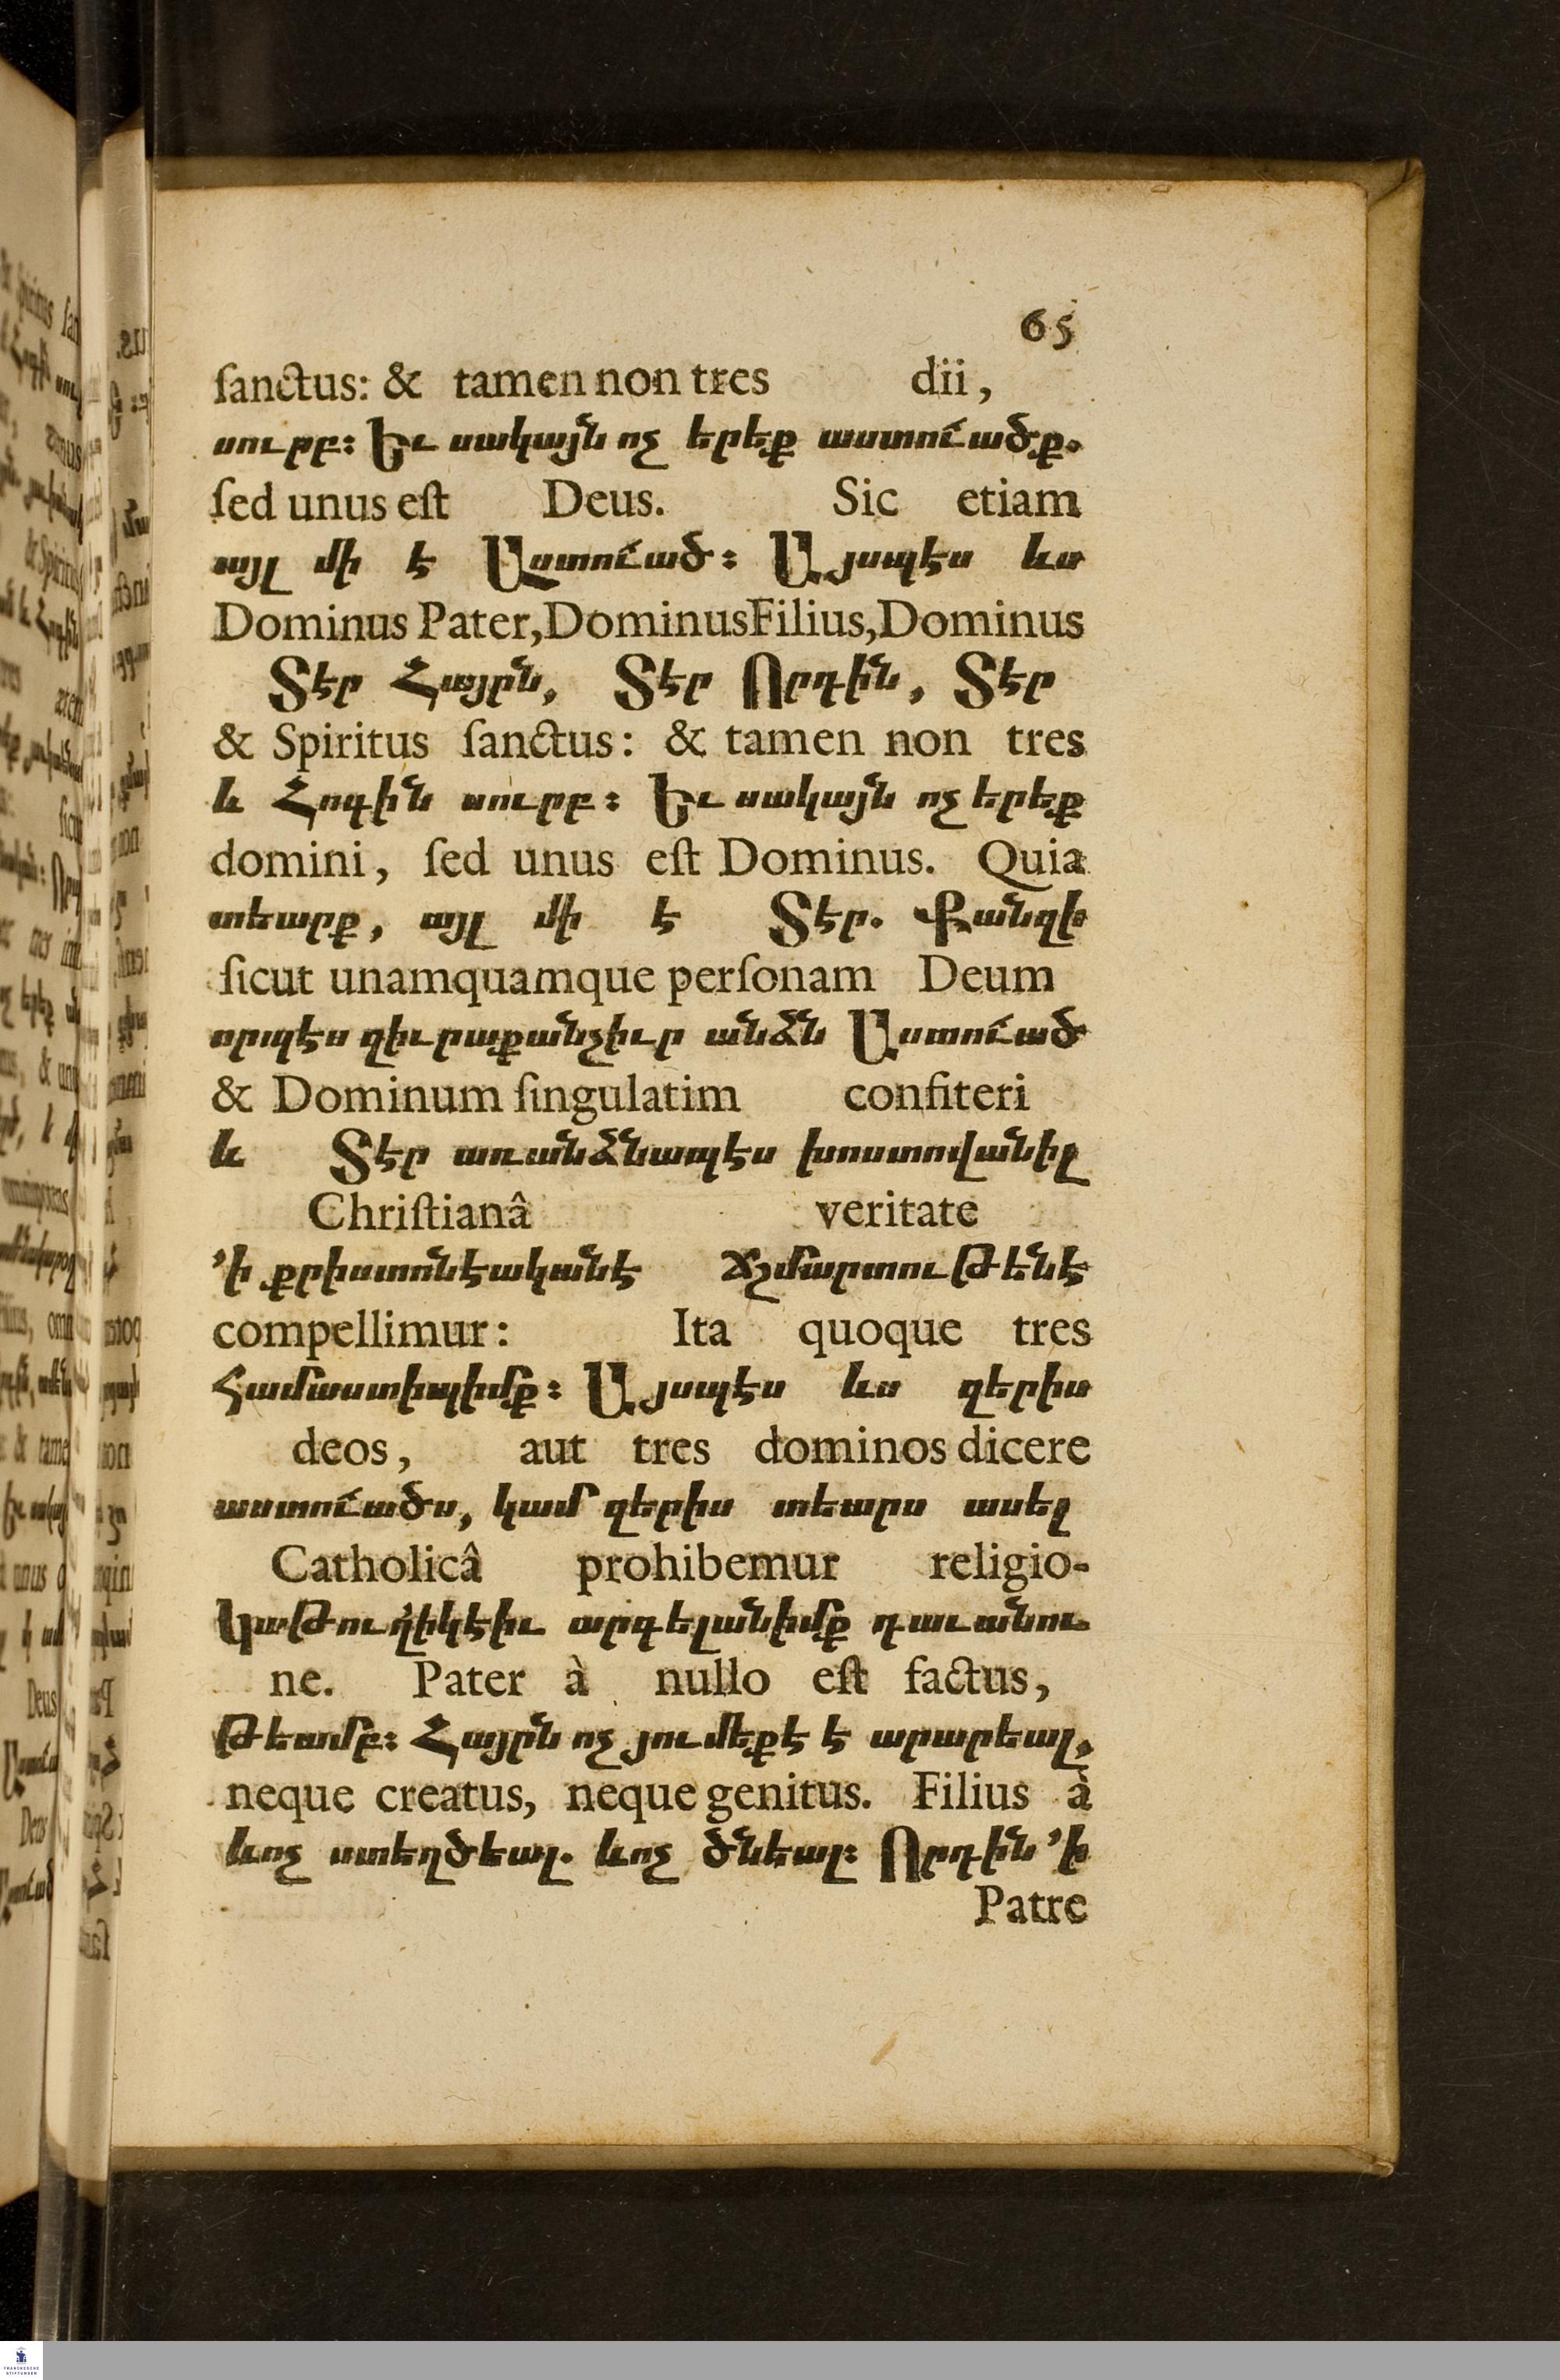 65
ſanctus: & tamen non tres dii,
սուրբ։ Եւ սակայն ոչ երեք աստուածք.
ſed unus eſt Deus. Sic etiam
այլ մի է Աստուած։ Այսպէս ևս
Dominus Pater, Dominus Filius, Dominus
Տէր Հայրն, Տէր Որդին, Տէր
& Spiritus ſanctus: & tamen non tres
և Հոգին սուրբ։ Եւ սակայն ոչ երեք
domini, ſed unus eſt Dominus. Quia
տեարք, այլ մի է Տէր. Քանզի
ſicut unamquamque perſonam Deum
որպէս զիւրաքանչիւր անձն Աստուած
& Dominum ſingulatim confiteri
և Տէր առանձնապէս խոստովանիլ
Chriſtianâ veritate
՚ի քրիստոնէականէ ճշմարտութենէ
compellimur: Ita quoque tres
Համաստիպիմք։ Այսպէս ևս զերիս
deos, aut tres dominos dicere
աստուածս, կամ զերիս տեարս ասել
Catholicâ prohibemur religio-
Կաթուղիկէիւ արգելանիմք դաւանու
ne. Pater à nullo eſt factus,
թեամբ։ Հայրն ոչ յումեքէ է արարեալ,
neque creatus, neque genitus. Filius à
ևոչ ստեղծեալ. ևոչ ծնեալ։ Որդին ՚ի
Patre